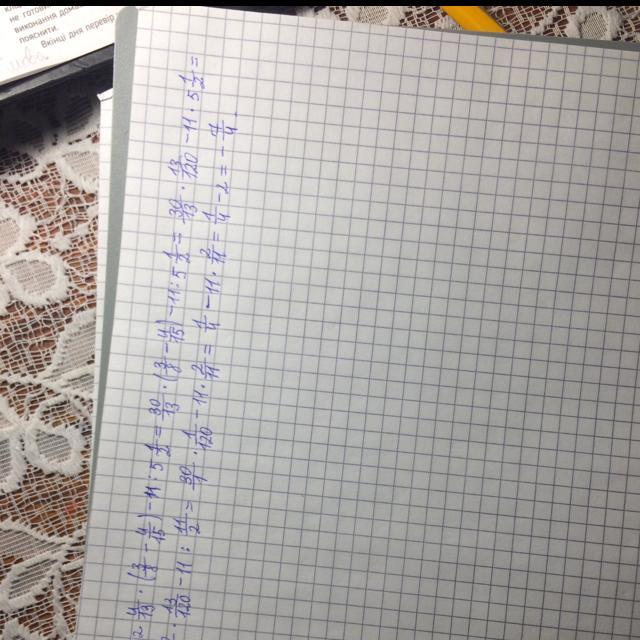 не готов
виконання дома
пояснити.
Вкінці дня перевір
2 4/13 · (3/8 - 4/15) - 11 : 5 1/2 = 30/13 · (3/8 - 4/15) - 11 : 5 1/2 = 30/13 · 13/120 - 11 : 5 1/2 =
· 13/120 - 11 : 11/2 = 30/1 · 1/120 - 11 · 2/11 = 1/4 - 11 · 2/11 = 1/4 - 2 = - 7/4